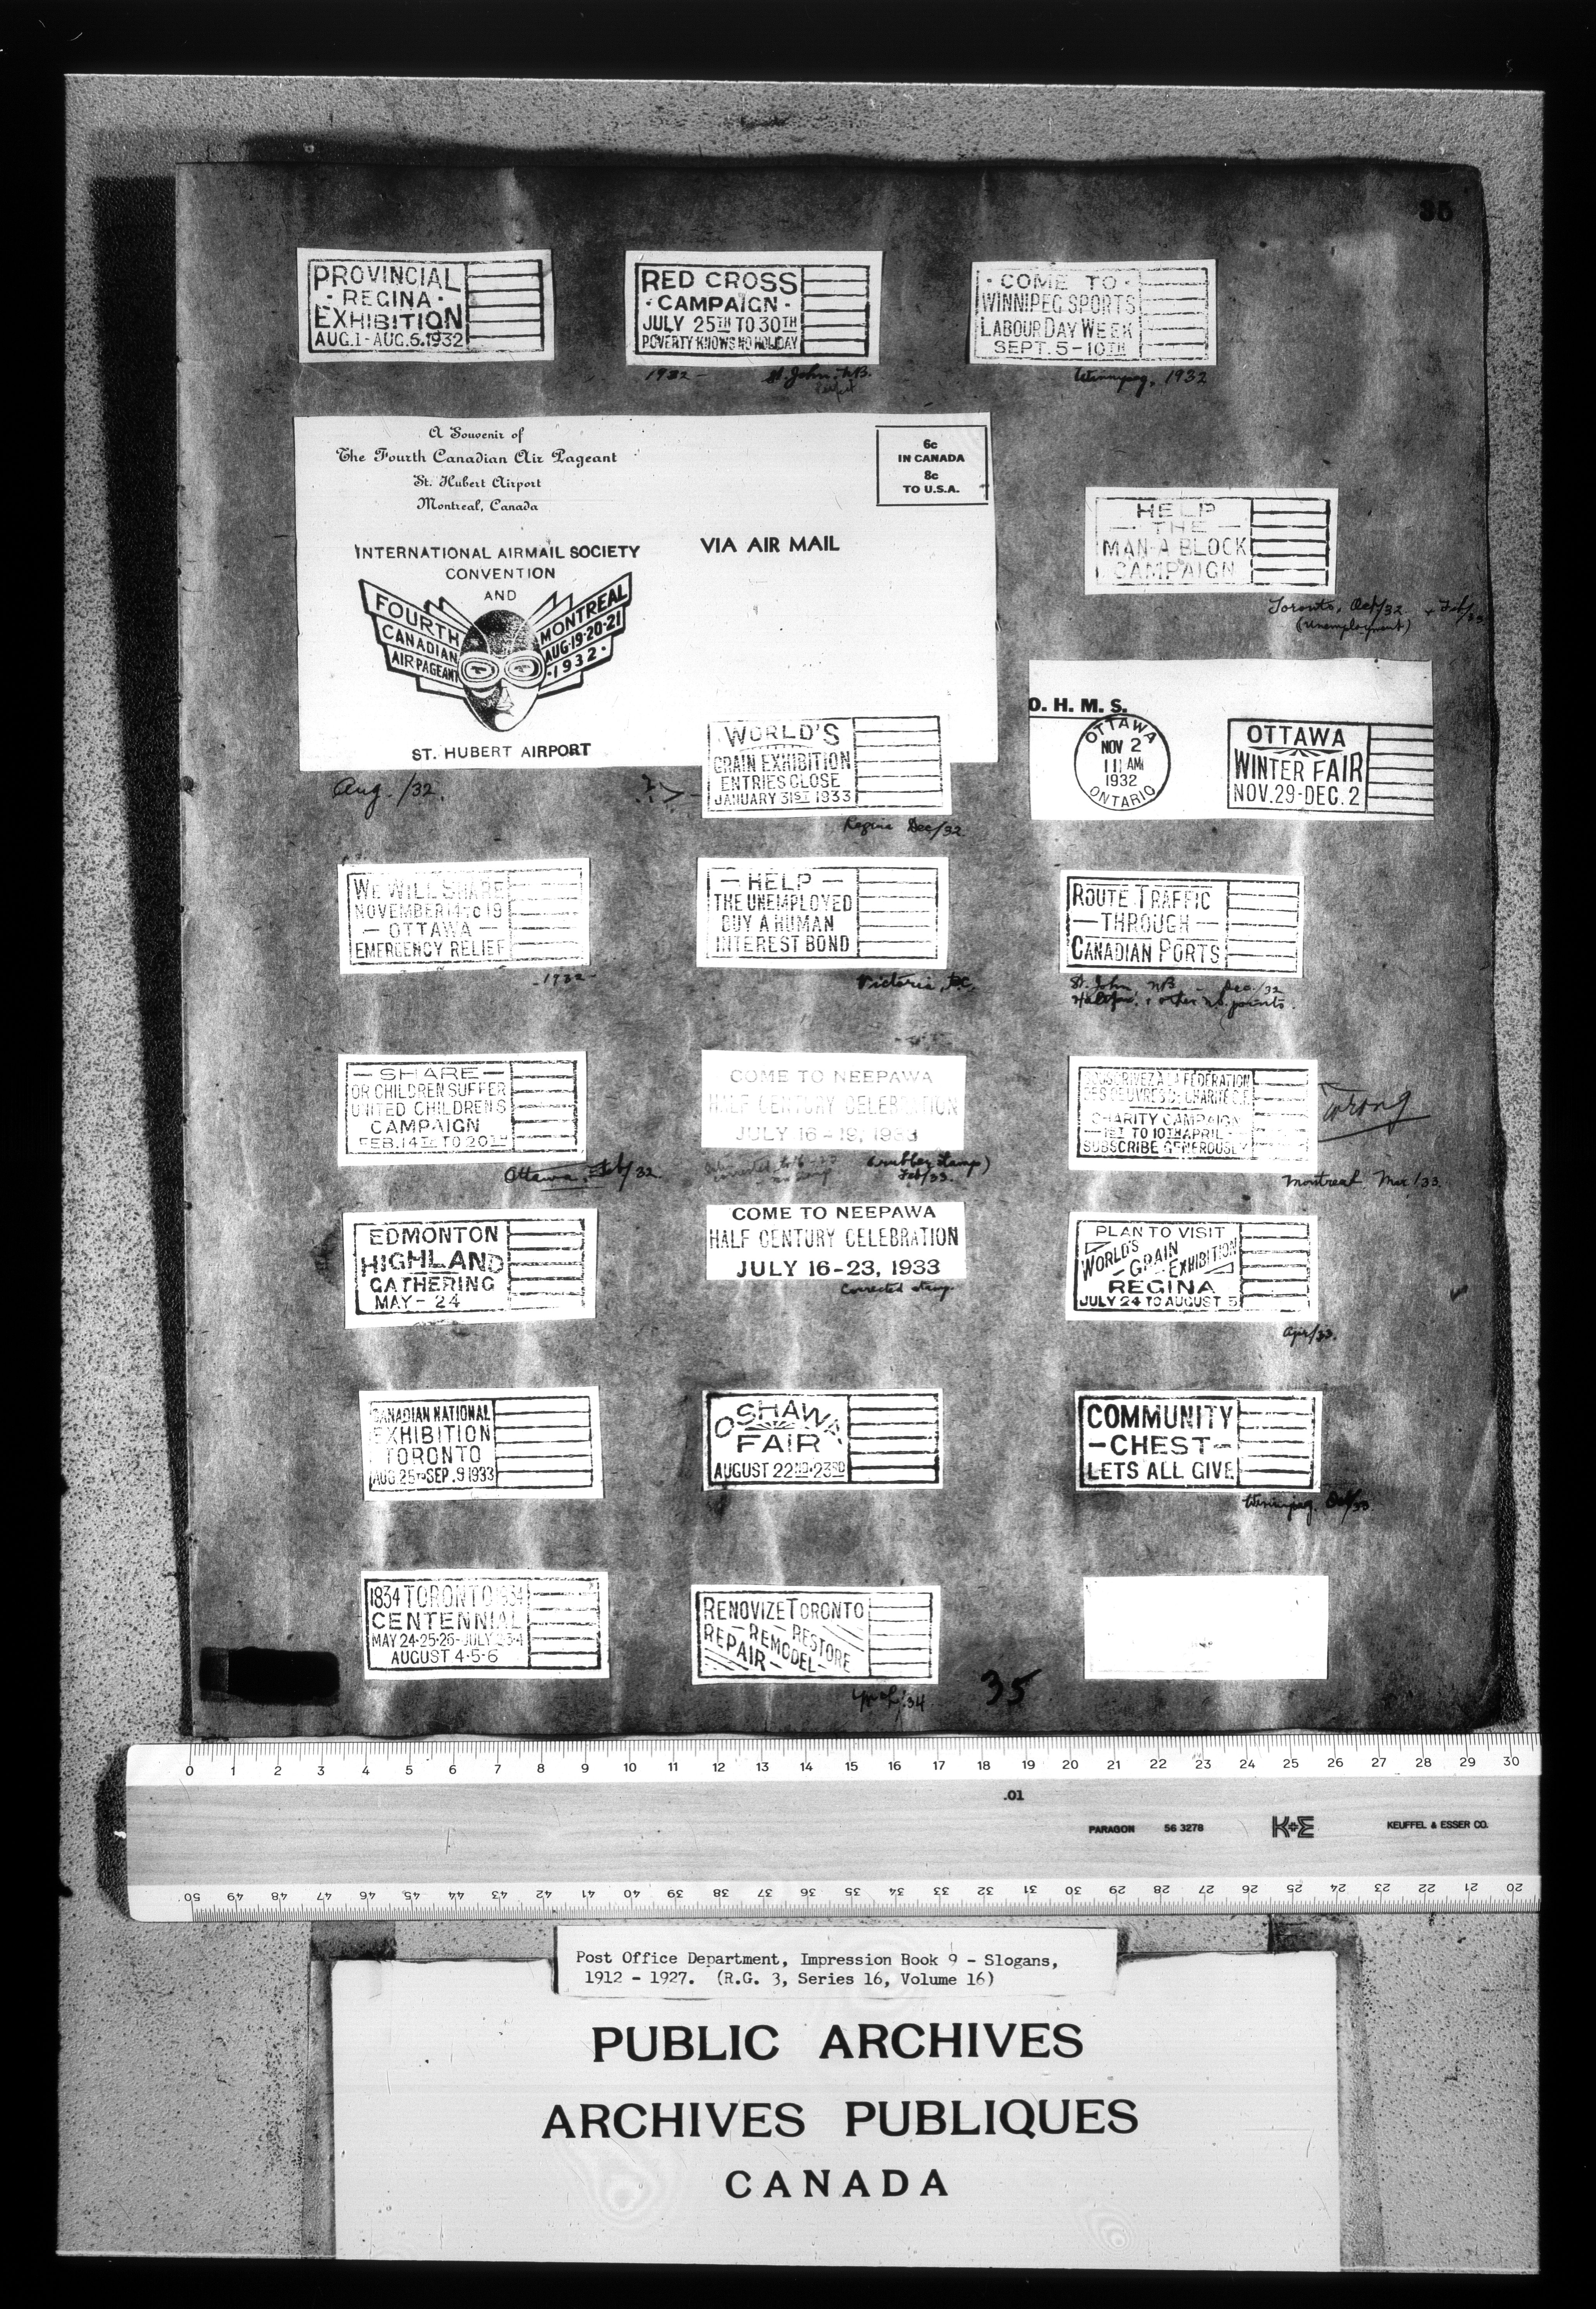 35
PROVINCIAL
· REGINA ·
EXHIBITION
AUG.1-AUG.6.1932
RED CROSS
· CAMPAIGN ·
JULY 25TH TO 30TH
POVERTY KNOWS NO HOLIDAY
1932 - St. John, N.B.
· COME TO ·
WINNIPEG SPORTS
LABOUR DAY WEEK
SEPT. 5-10TH
Winnipeg, 1932
A Souvenir of
The Fourth Canadian Air Pageant
St. Hubert Airport
Montreal, Canada
6c
IN CANADA
8c
TO U.S.A.
VIA AIR MAIL
INTERNATIONAL AIRMAIL SOCIETY
CONVENTION
AND
FOURTH
CANADIAN
AIR PAGEANT
MONTREAL
AUG·19·20·21
·1932·
ST. HUBERT AIRPORT
Aug. /32.
HELP
— THE —
MAN-A BLOCK
CAMPAIGN
Toronto, Oct/32 + Feb/33
(Unemployment)
WORLD'S
GRAIN EXHIBITION
ENTRIES CLOSE
JANUARY 31ST 1933
Regina Dec/32
O. H. M. S.
OTTAWA
NOV 2
11 AM
1932
ONTARIO
OTTAWA
WINTER FAIR
NOV.29-DEC.2
WE WILL SHARE
NOVEMBER 14 TO 19
— OTTAWA —
EMERGENCY RELIEF
-1932-
— HELP —
THE UNEMPLOYED
BUY A HUMAN
INTEREST BOND
Victoria, B.C.
ROUTE TRAFFIC
— THROUGH —
CANADIAN PORTS
St. John, NB - Dec./32
Halifax, & other N.S. points.
— SHARE —
OR CHILDREN SUFFER
UNITED CHILDRENS
CAMPAIGN
FEB.14TH TO 20TH
Ottawa, Feb/32
COME TO NEEPAWA
HALF CENTURY CELEBRATION
JULY 16-19, 1933
(rubber stamp)
Feb/33.
SOUSCRIVEZ A LA FEDERATION
DES OEUVRES DE CHARITE C.F.
CHARITY CAMPAIGN
— 1ST TO 10TH APRIL —
SUBSCRIBE GENEROUSLY
Wrong
Montreal Mar/33.
EDMONTON
HIGHLAND
GATHERING
MAY - 24
COME TO NEEPAWA
HALF CENTURY CELEBRATION
JULY 16-23, 1933
Corrected stamp
PLAN TO VISIT
WORLD'S
GRAIN
EXHIBITION
REGINA
JULY 24 TO AUGUST 5
Apr/33.
CANADIAN NATIONAL
EXHIBITION
TORONTO
AUG.25TO SEP.9 1933
OSHAWA
FAIR
AUGUST 22ND·23RD
COMMUNITY
-CHEST-
LETS ALL GIVE
Winnipeg. Oct/33.
1834 TORONTO 1934
CENTENNIAL
MAY 24·25·26-JULY 2·3·4
AUGUST 4·5·6
RENOVIZE TORONTO
REPAIR—REMODEL—RESTORE
35
0 1 2 3 4 5 6 7 8 9 10 11 12 13 14 15 16 17 18 19 20 21 22 23 24 25 26 27 28 29 30
.01
PARAGON 56 3278 K+E KEUFFEL & ESSER CO.
50 49 48 47 46 45 44 43 42 41 40 39 38 37 36 35 34 33 32 31 30 29 28 27 26 25 24 23 22 21 20
Post Office Department, Impression Book 9 - Slogans,
1912 - 1927. (R.G. 3, Series 16, Volume 16)
PUBLIC ARCHIVES
ARCHIVES PUBLIQUES
CANADA